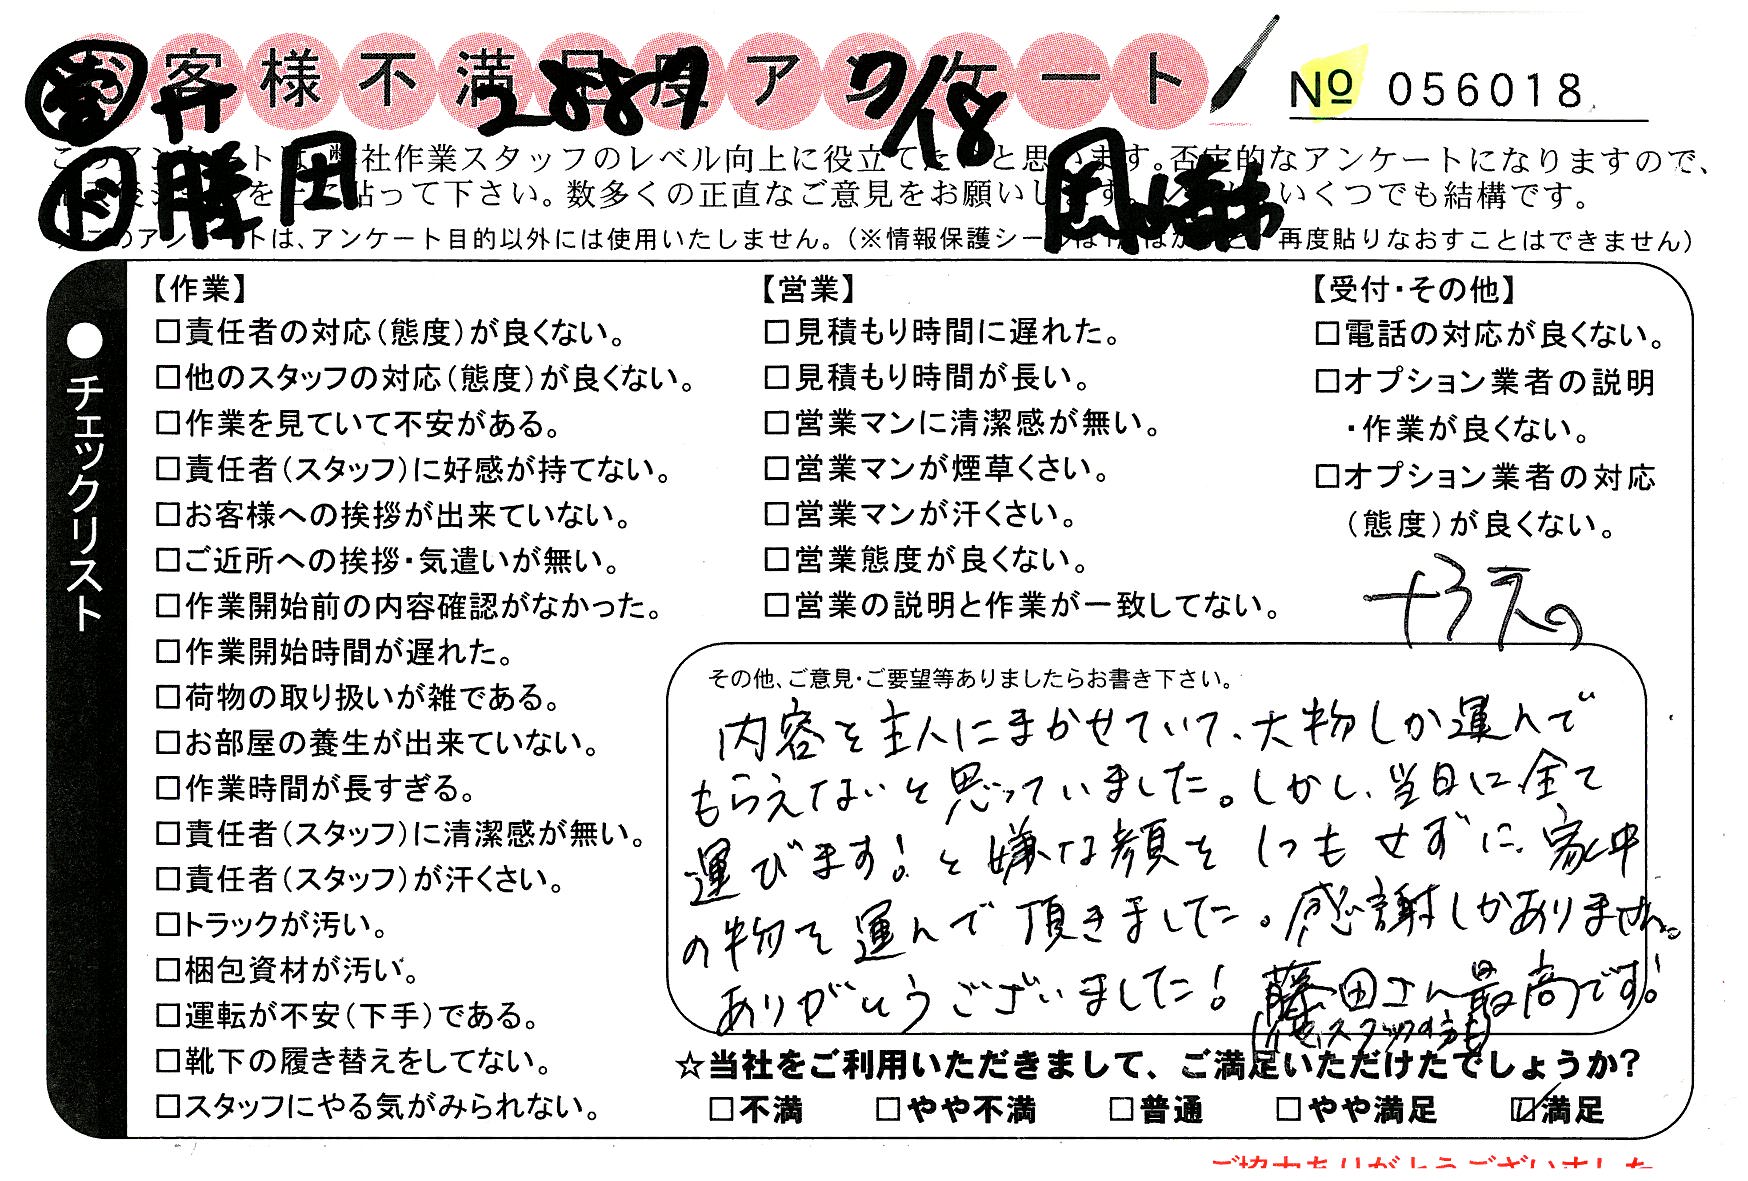 お客様不満足度アンケート
No 056018
井 2887 7/18
勝田 岡崎
このアンケートは、弊社作業スタッフのレベル向上に役立てたいと思います。否定的なアンケートになりますので、
貼って下さい。数多くの正直なご意見をお願いします。いくつでも結構です。
このアンケートは、アンケート目的以外には使用いたしません。(※情報保護シールは 再度貼りなおすことはできません)
●チェックリスト
【作業】
□責任者の対応(態度)が良くない。
□他のスタッフの対応(態度)が良くない。
□作業を見ていて不安がある。
□責任者(スタッフ)に好感が持てない。
□お客様への挨拶が出来ていない。
□ご近所への挨拶・気遣いが無い。
□作業開始前の内容確認がなかった。
□作業開始時間が遅れた。
□荷物の取り扱いが雑である。
□お部屋の養生が出来ていない。
□作業時間が長すぎる。
□責任者(スタッフ)に清潔感が無い。
□責任者(スタッフ)が汗くさい。
□トラックが汚い。
□梱包資材が汚い。
□運転が不安(下手)である。
□靴下の履き替えをしてない。
□スタッフにやる気がみられない。
【営業】
□見積もり時間に遅れた。
□見積もり時間が長い。
□営業マンに清潔感が無い。
□営業マンが煙草くさい。
□営業マンが汗くさい。
□営業態度が良くない。
□営業の説明と作業が一致してない。
【受付・その他】
□電話の対応が良くない。
□オプション業者の説明
・作業が良くない。
□オプション業者の対応
(態度)が良くない。
その他、ご意見・ご要望等ありましたらお書き下さい。
内容を主人にまかせていて、大物しか運んで
もらえないと思っていました。しかし、当日に全て
運びます!と嫌な顔を1つもせずに、家中
の物を運んで頂きました。感謝しかありません。
ありがとうございました! 藤田さん最高です!
(他、スタッフの方も)
☆当社をご利用いただきまして、ご満足いただけたでしょうか?
□不満 □やや不満 □普通 □やや満足 ☑満足
ご協力ありがとうございました